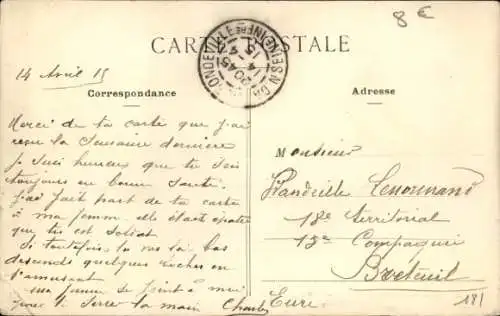 8 €
CARTE POSTALE
14 Avril 15
Correspondance
Adresse
Merci de ta carte que j'ai
reçu la semaine dernière
Je suis heureux que tu sois
toujours en bonne santé.
J'ai fait part de ta carte
à ma femm. elle était épatée
que tu es soldat
Si toutefois tu vas là bas
descends quelques boches en
t'amusant
ma femme se joint à moi
pour te serrer la main Charles
Monsieur
Lenormand
18e territorial
15e Compagnie
Breteuil
Eure
181